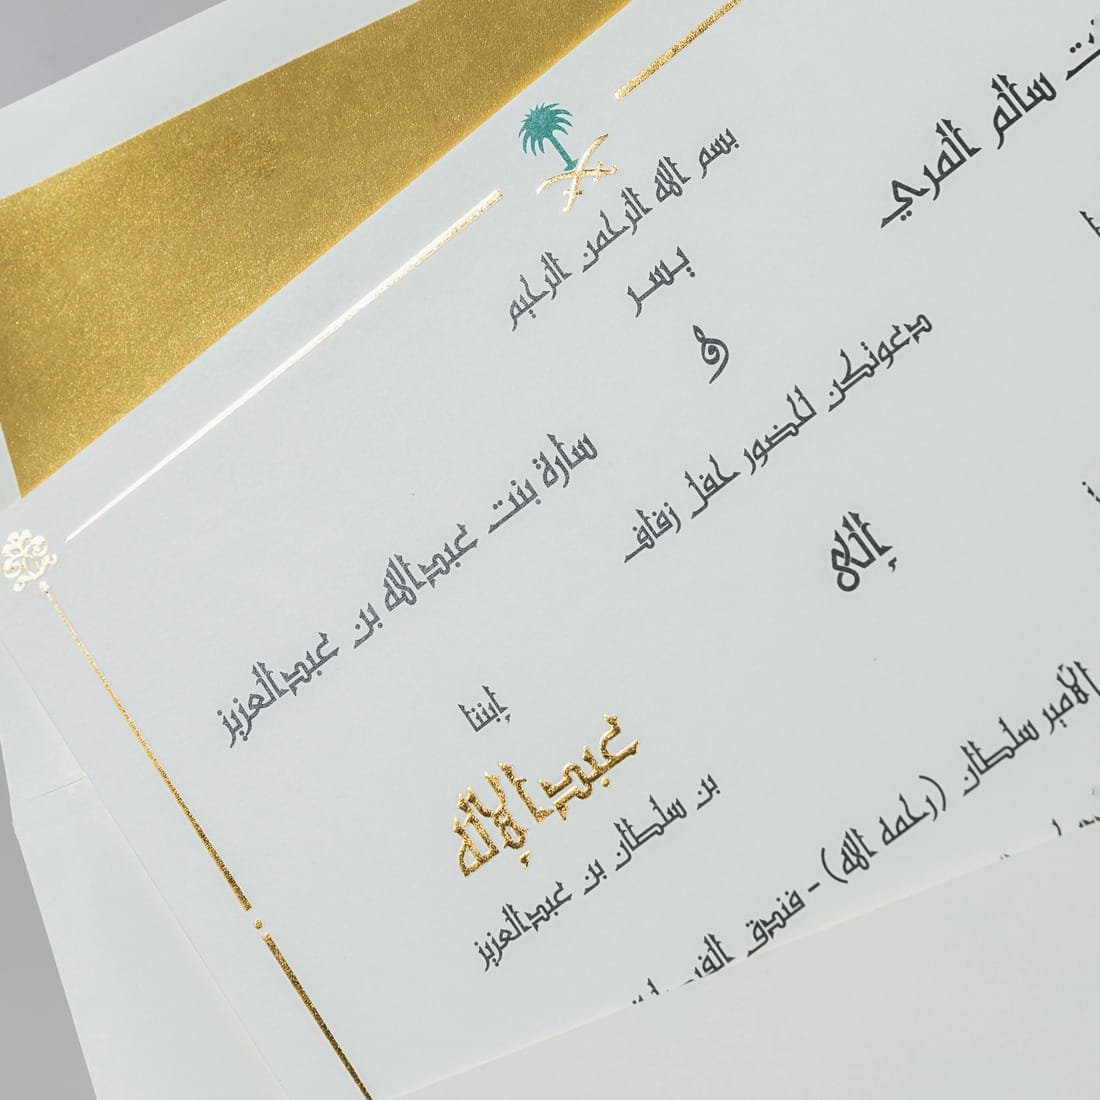 بسم الله الرحمن الرحيم
يسر
سالم المري
و
سارة بنت عبدالله بن عبدالعزيز
دعوتكن لحضور حفل زفاف
إبننا
عبدالإله
بن سلطان بن عبدالعزيز
إلى
الأمير سلطان (رحمه الله) - فندق